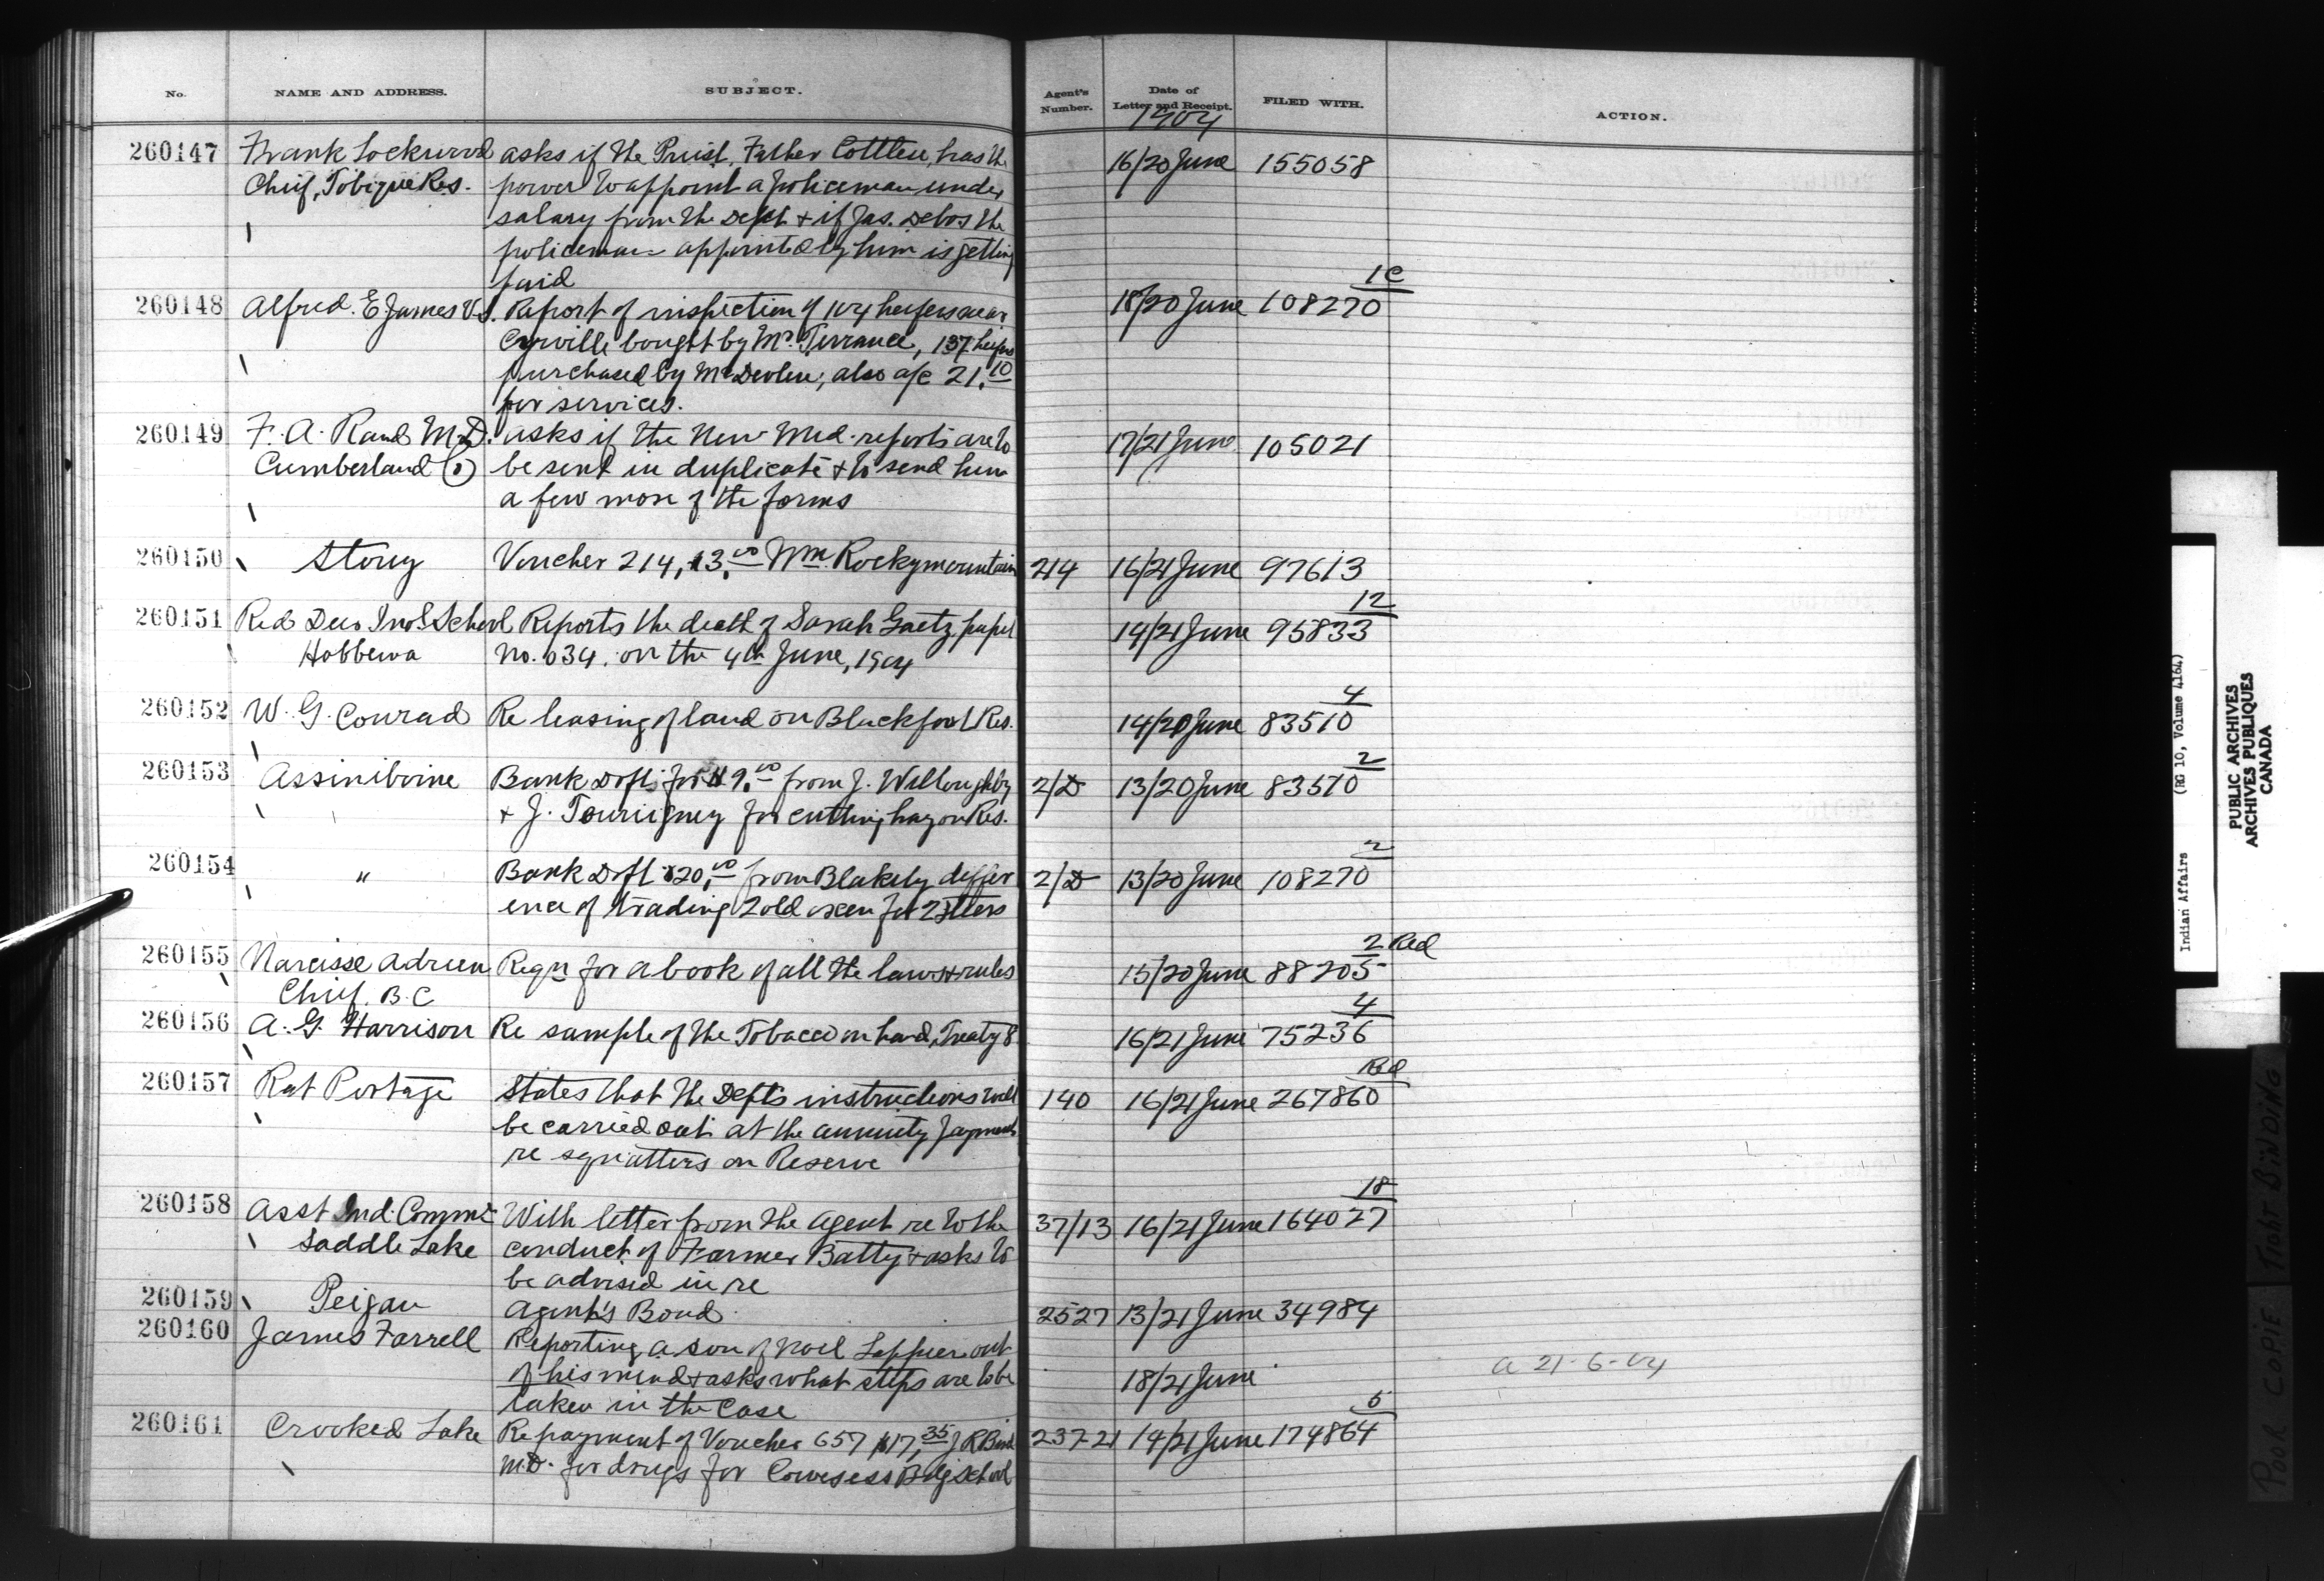 No. NAME AND ADDRESS. SUBJECT. Agent's Number. Date of Letter and Receipt. FILED WITH. ACTION.
1904
260147 Frank Lockwood asks if the Priest, Father Cottleu, has the 16/20 June 155058
Chief, Tobique Res. power to appoint a policeman under
salary from the Dept + if Jas. Debos the
policeman appointed by him is getting
paid
1C
260148 Alfred. E James V.S. Report of inspection of 104 heifers near 18/20 June 108270
Cyrville bought by Mr. Terrance, 137 heifers
purchased by Mr Devlin; also a/c 21.10
for services.
260149 F. A. Rand M.D. asks if the New Med. reports are to 17/21 June 105021
Cumberland be sent in duplicate + to send him
a few more of the forms
260150 Stony Voucher 214, 13.00 Wm. Rockymountain 214 16/21 June 97613
12
260151 Red Deer Ind'l School Reports the death of Sarah Gaetz pupil 14/21 June 95833
Hobbema No. 034. on the 4th June, 1904
4
260152 W. G. Conrad Re leasing of land on Blackfoot Res. 14/20 June 83510
2
260153 Assiniboine Bank Dft. for 9.00 from J. Willoughby 2/D 13/20 June 83510
+ J. Tourigney for cutting hay on Res.
2
260154 " Bank Dft $20.00 from Blakely differ 2/D 13/20 June 108270
ence of trading 2 old oxen for 2 steers
2 Red
260155 Narcisse Adrien Reqn for a book of all the laws + rules 15/20 June 88205
Chief. B.C
4
260156 A. G. Harrison Re sample of the Tobacco on hand, Treaty 8 16/21 June 75236
Bd
260157 Rat Portage States that the Dept's instructions will 140 16/21 June 267860
be carried out at the annuity payments
re squatters on Reserve
18
260158 Asst Ind. Commr With letter from the Agent re to the 37/13 16/21 June 164027
Saddle Lake conduct of Farmer Batty + asks to
be advised in re
260159 Peigan Agent's Bond 2527 13/21 June 34984
260160 James Farrell Reporting a son of Noel out
of his mind + asks what steps are to be 18/21 June a 21-6-04
taken in the Case
5
260161 Crooked Lake Re payment of Voucher 657 $17.35 J R Bird 23721 14/21 June 174864
M.D. for drugs for Cowesess Bdg School
Indian Affairs (RG 10, Volume 4164)
PUBLIC ARCHIVES
ARCHIVES PUBLIQUES
CANADA
POOR COPIE TIGHT BINDING